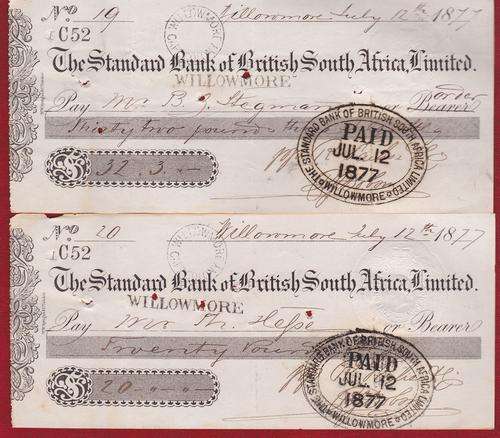 No. 19 Willowmore July 12th 1877
C52
The Standard Bank of British South Africa, Limited.
WILLOWMORE
Pay Mr. B. J. Stegman or Bearer
order
Thirty two pounds
32.3.-
THE STANDARD BANK OF BRITISH SOUTH AFRICA LIMITED
PAID
JUL. 12
1877
WILLOWMORE
No. 20 Willowmore July 12th 1877
C52
The Standard Bank of British South Africa, Limited.
WILLOWMORE
Pay Mr. Hesse or Bearer
Twenty Pounds
20
THE STANDARD BANK OF BRITISH SOUTH AFRICA LIMITED
PAID
JUL. 12
1877
WILLOWMORE